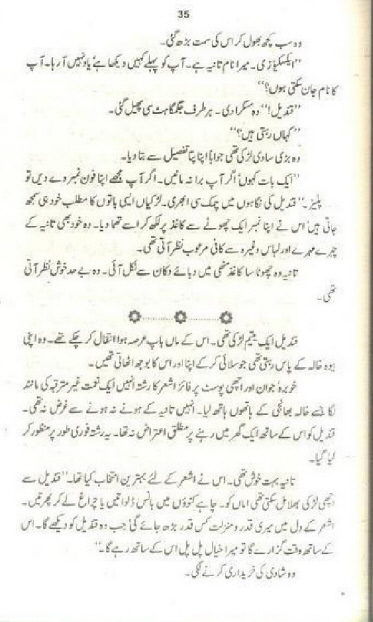 35
وہ سب کچھ بھول کر اس کی سمت بڑھ گئی۔
”ایکسکیوز می۔ میرا نام تانیہ ہے۔ آپ کو پہلے کہیں دیکھا ہے یاد نہیں آ رہا۔ آپ
کا نام جان سکتی ہوں؟“
”قندیل!“ وہ مسکرا دی۔ ہر طرف جگمگاہٹ سی پھیل گئی۔
”کہاں رہتی ہیں؟“
وہ بڑی سادی لڑکی تھی جواباً اپنا پتا تفصیل سے بتا دیا۔
”ایک بات کہوں‘ اگر آپ برا نہ مانیں۔ اگر آپ مجھے اپنا فون نمبر دے دیں تو
پلیز۔“ قندیل کی نگاہوں میں چمک سی ابھری۔ لڑکیاں ایسی باتوں کا مطلب خود ہی سمجھ
جاتی ہیں‘ اس نے اپنا نمبر ایک چھوٹے سے کاغذ پر لکھ کر اسے تھما دیا۔ وہ خود بھی تانیہ کے
چہرے مہرے اور لباس وغیرہ سے کافی مرعوب نظر آتی تھی۔
تانیہ وہ چھوٹا سا کاغذ مٹھی میں دبائے دکان سے نکل آئی۔ وہ بے حد خوش نظر آتی
تھی۔
قندیل ایک یتیم لڑکی تھی۔ اس کے ماں باپ عرصہ ہوا انتقال کر چکے تھے۔ وہ اپنی
بیوہ خالہ کے پاس رہتی تھی جو سلائی کر کے اپنا اور اس کا بوجھ اٹھاتی تھیں۔
خوبرو‘ جوان اور اچھی پوسٹ پر فائز اشعر کا رشتہ انہیں ایک نعمت غیر مترقبہ کی مانند
لگا جسے خالہ بھانجی کے ہاتھوں ہاتھ لیا۔ انہیں تانیہ کے ہونے نہ ہونے سے غرض نہ تھی۔
قندیل کو اس کے ساتھ ایک گھر میں رہنے پر مطلق اعتراض نہ تھا۔ یہ رشتہ فوری طور پر منظور کر
لیا گیا۔
تانیہ بہت خوش تھی۔ اس نے اشعر کے لئے بہترین انتخاب کیا تھا۔ ”قندیل سے
اچھی لڑکی بھلا مل سکتی تھی اماں کو۔ چاہے کنوؤں میں بانس ڈلواتیں یا چراغ لے کر پھرتیں۔
اشعر کے دل میں میری قدر و منزلت کس قدر بڑھ جائے گی‘ جب وہ قندیل کو دیکھے گا۔ اس
کے ساتھ وقت گزارے گا تو میرا خیال پل پل اس کے ساتھ رہے گا۔“
وہ شادی کی خریداری کرنے لگی۔